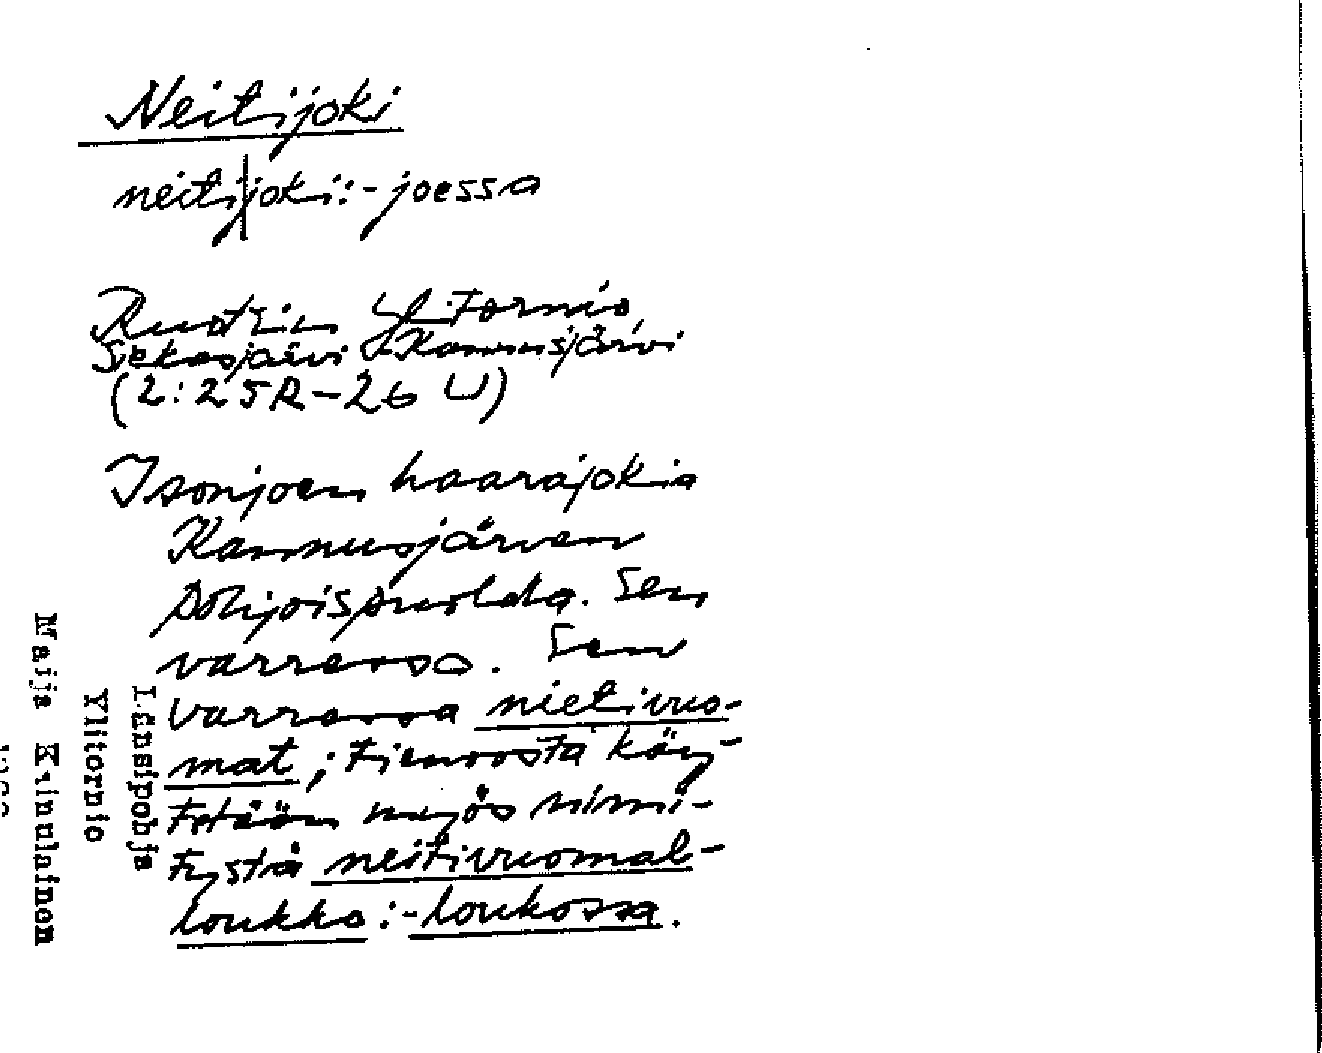 Neitijoki
neiti|joki:-joessa
Ruotsin Yl.Tornio,
Sekasjärvi Kannusjärvi
(2:25R-26 U)
Isonjoen haarajokia
Kannusjärven
pohjoispuolella. Sen
varressa. Sen
varressa nietivuo-
mat; tienoosta käy-
tetään myös nimi-
tystä neitivuomal-
loukko:-loukossa.
Länsipohja
Ylitornio
Maija